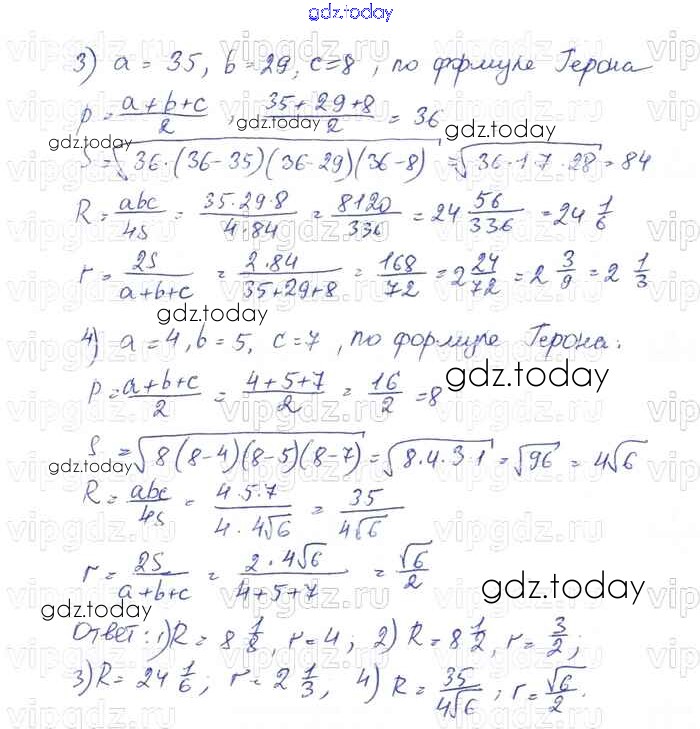 gdz.today
3) a = 35, b = 29, c = 8, по формуле Герона
p = (a+b+c)/2, (35+29+8)/2 = 36
gdz.today gdz.today
S = √(36·(36-35)(36-29)(36-8)) = √(36·1·7·28) = 84
R = abc/4S = (35·29·8)/(4·84) = 8120/336 = 24 56/336 = 24 1/6
r = 2S/(a+b+c) = (2·84)/(35+29+8) = 168/72 = 2 24/72 = 2 3/9 = 2 1/3
gdz.today
4) a = 4, b = 5, c = 7, по формуле Герона:
P = (a+b+c)/2 = (4+5+7)/2 = 16/2 = 8
gdz.today
S = √(8(8-4)(8-5)(8-7)) = √(8·4·3·1) = √96 = 4√6
gdz.today
R = abc/4S = (4·5·7)/(4·4√6) = 35/(4√6)
r = 2S/(a+b+c) = (2·4√6)/(4+5+7) = √6/2
gdz.today gdz.today
Ответ: 1) R = 8 1/8, r = 4; 2) R = 8 1/2, r = 3/2;
3) R = 24 1/6; r = 2 1/3, 4) R = 35/(4√6); r = √6/2.